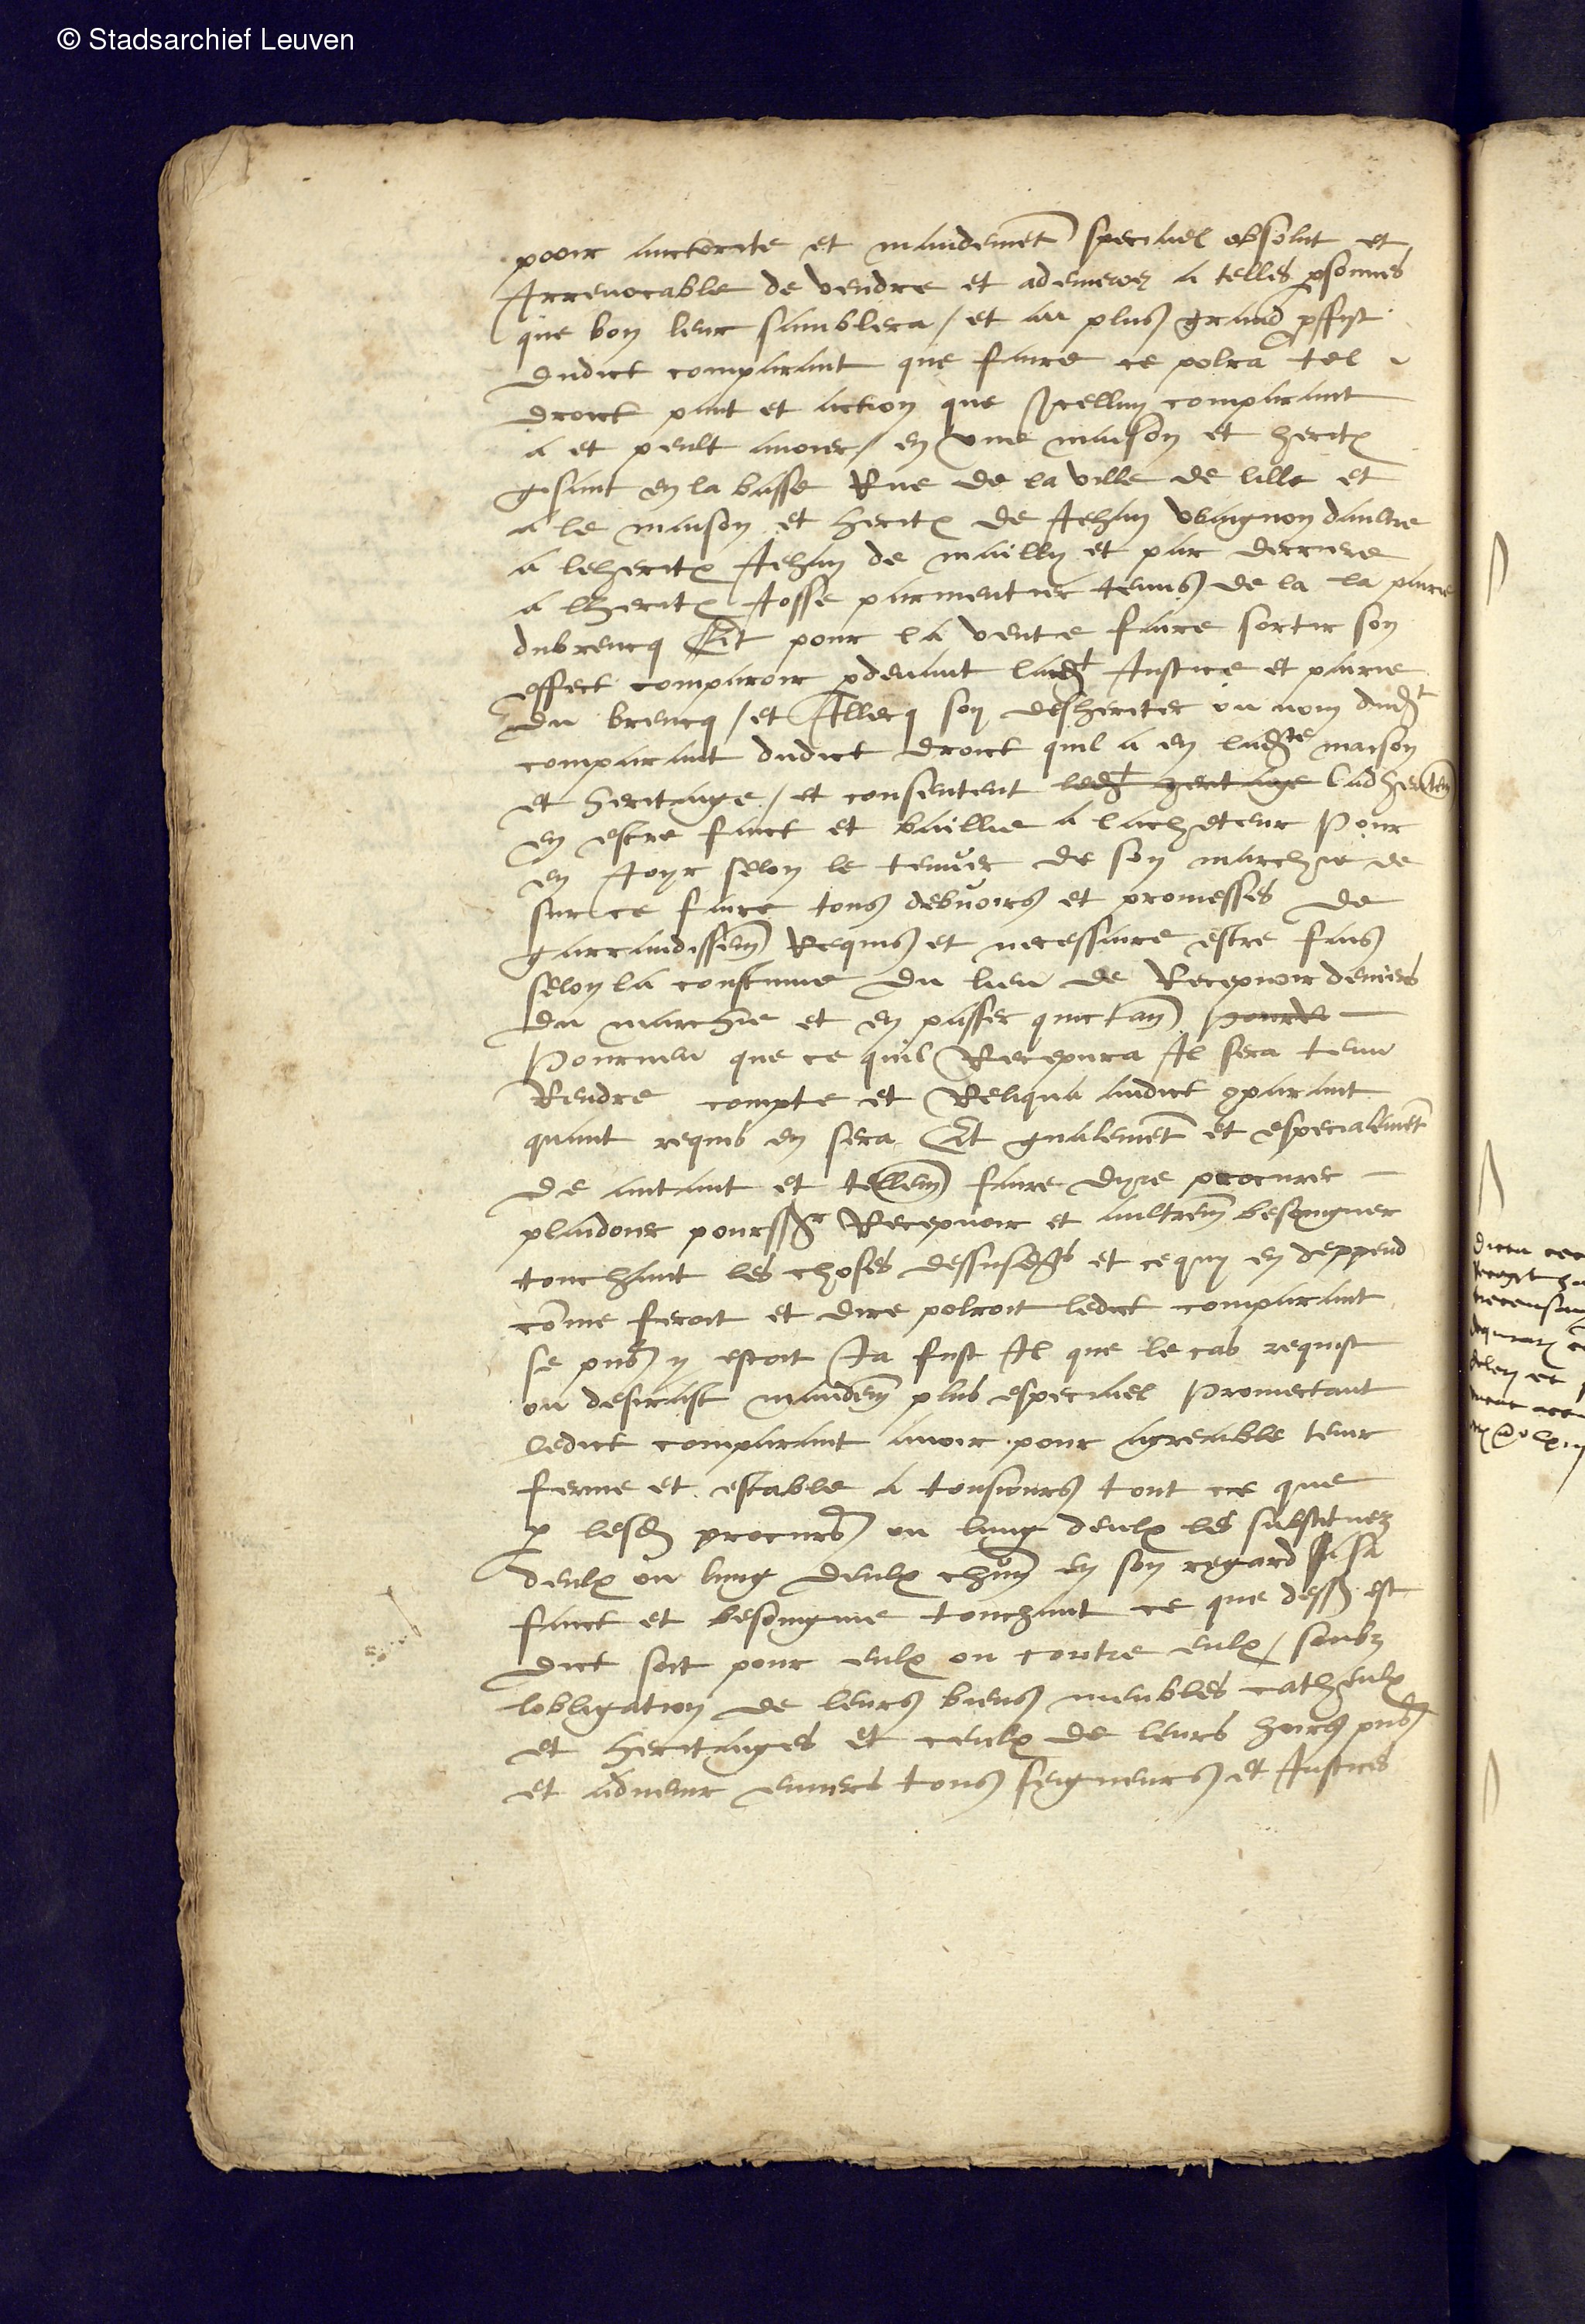 © Stadsarchief Leuven
pooir auctorite et mandemet speciael absolut et
Irrevocable de vendre et a telles psonnes
que bon leur samblera / et au plus grand pffyt
dudict comparant que faire ce polra tel
droict part et action que Icelluy comparant
a et peult avoir / en une maison et herit
gisant en la basse Rue de la ville de lille et
a le maison et herit de Jehan daultre
a leherit Jehan de mailly et par derriere
a lherit Josse parmentier tenus de la la pairie
du brencq Et pour la vente faire sortir son
effect comparoir pdevant lad Justice et pairie
du brencq / et Illecq soy desheriter ou nom dud
comparant dudict droict quil a en ladte maison
et heritaige / et consentent led heritage ladheriten
en estre faict et baillie a lacheteur Pour
en Joyr selon le teneur de son marchie de
sur ce faire tous debvoirs et promesses de
garrandissem Requis et necessaire estre fais
selon la coustume du lieu de Recepvoir deniers
du marchie et en passer quictan
Pourveu que ce quil Recepvra Il sera tenu
Rendre compte et Reliqua audict gparant
quant requis en sera Et gnalemet et especialemet
de autant et tellem faire dyre procurer
plaidoier pourss Recepvoir et aultrem besoingner
touchant les choses dessusds et ce quy en deppend
come feroit et dire polroit ledict comparant
se pns y estoit Ja fust Il que le cas requist
ou desirast mandem plus especiael Promectant
ledict comparant avoir pour agreable tenir
ferme et estable a tousiours tout ce que
p lesd procurs ou lung deulx les substituez
deulx ou lung deulx chun en son regard sera
faict et besoingnie touchant ce que dess est
dict soit pour eulx ou contre eulx / soubz
lobligation de leurs biens meubles catheulx
et heritaiges et ceulx de leurs hoirs pns
et advenir envers tous seigneurs et Justices